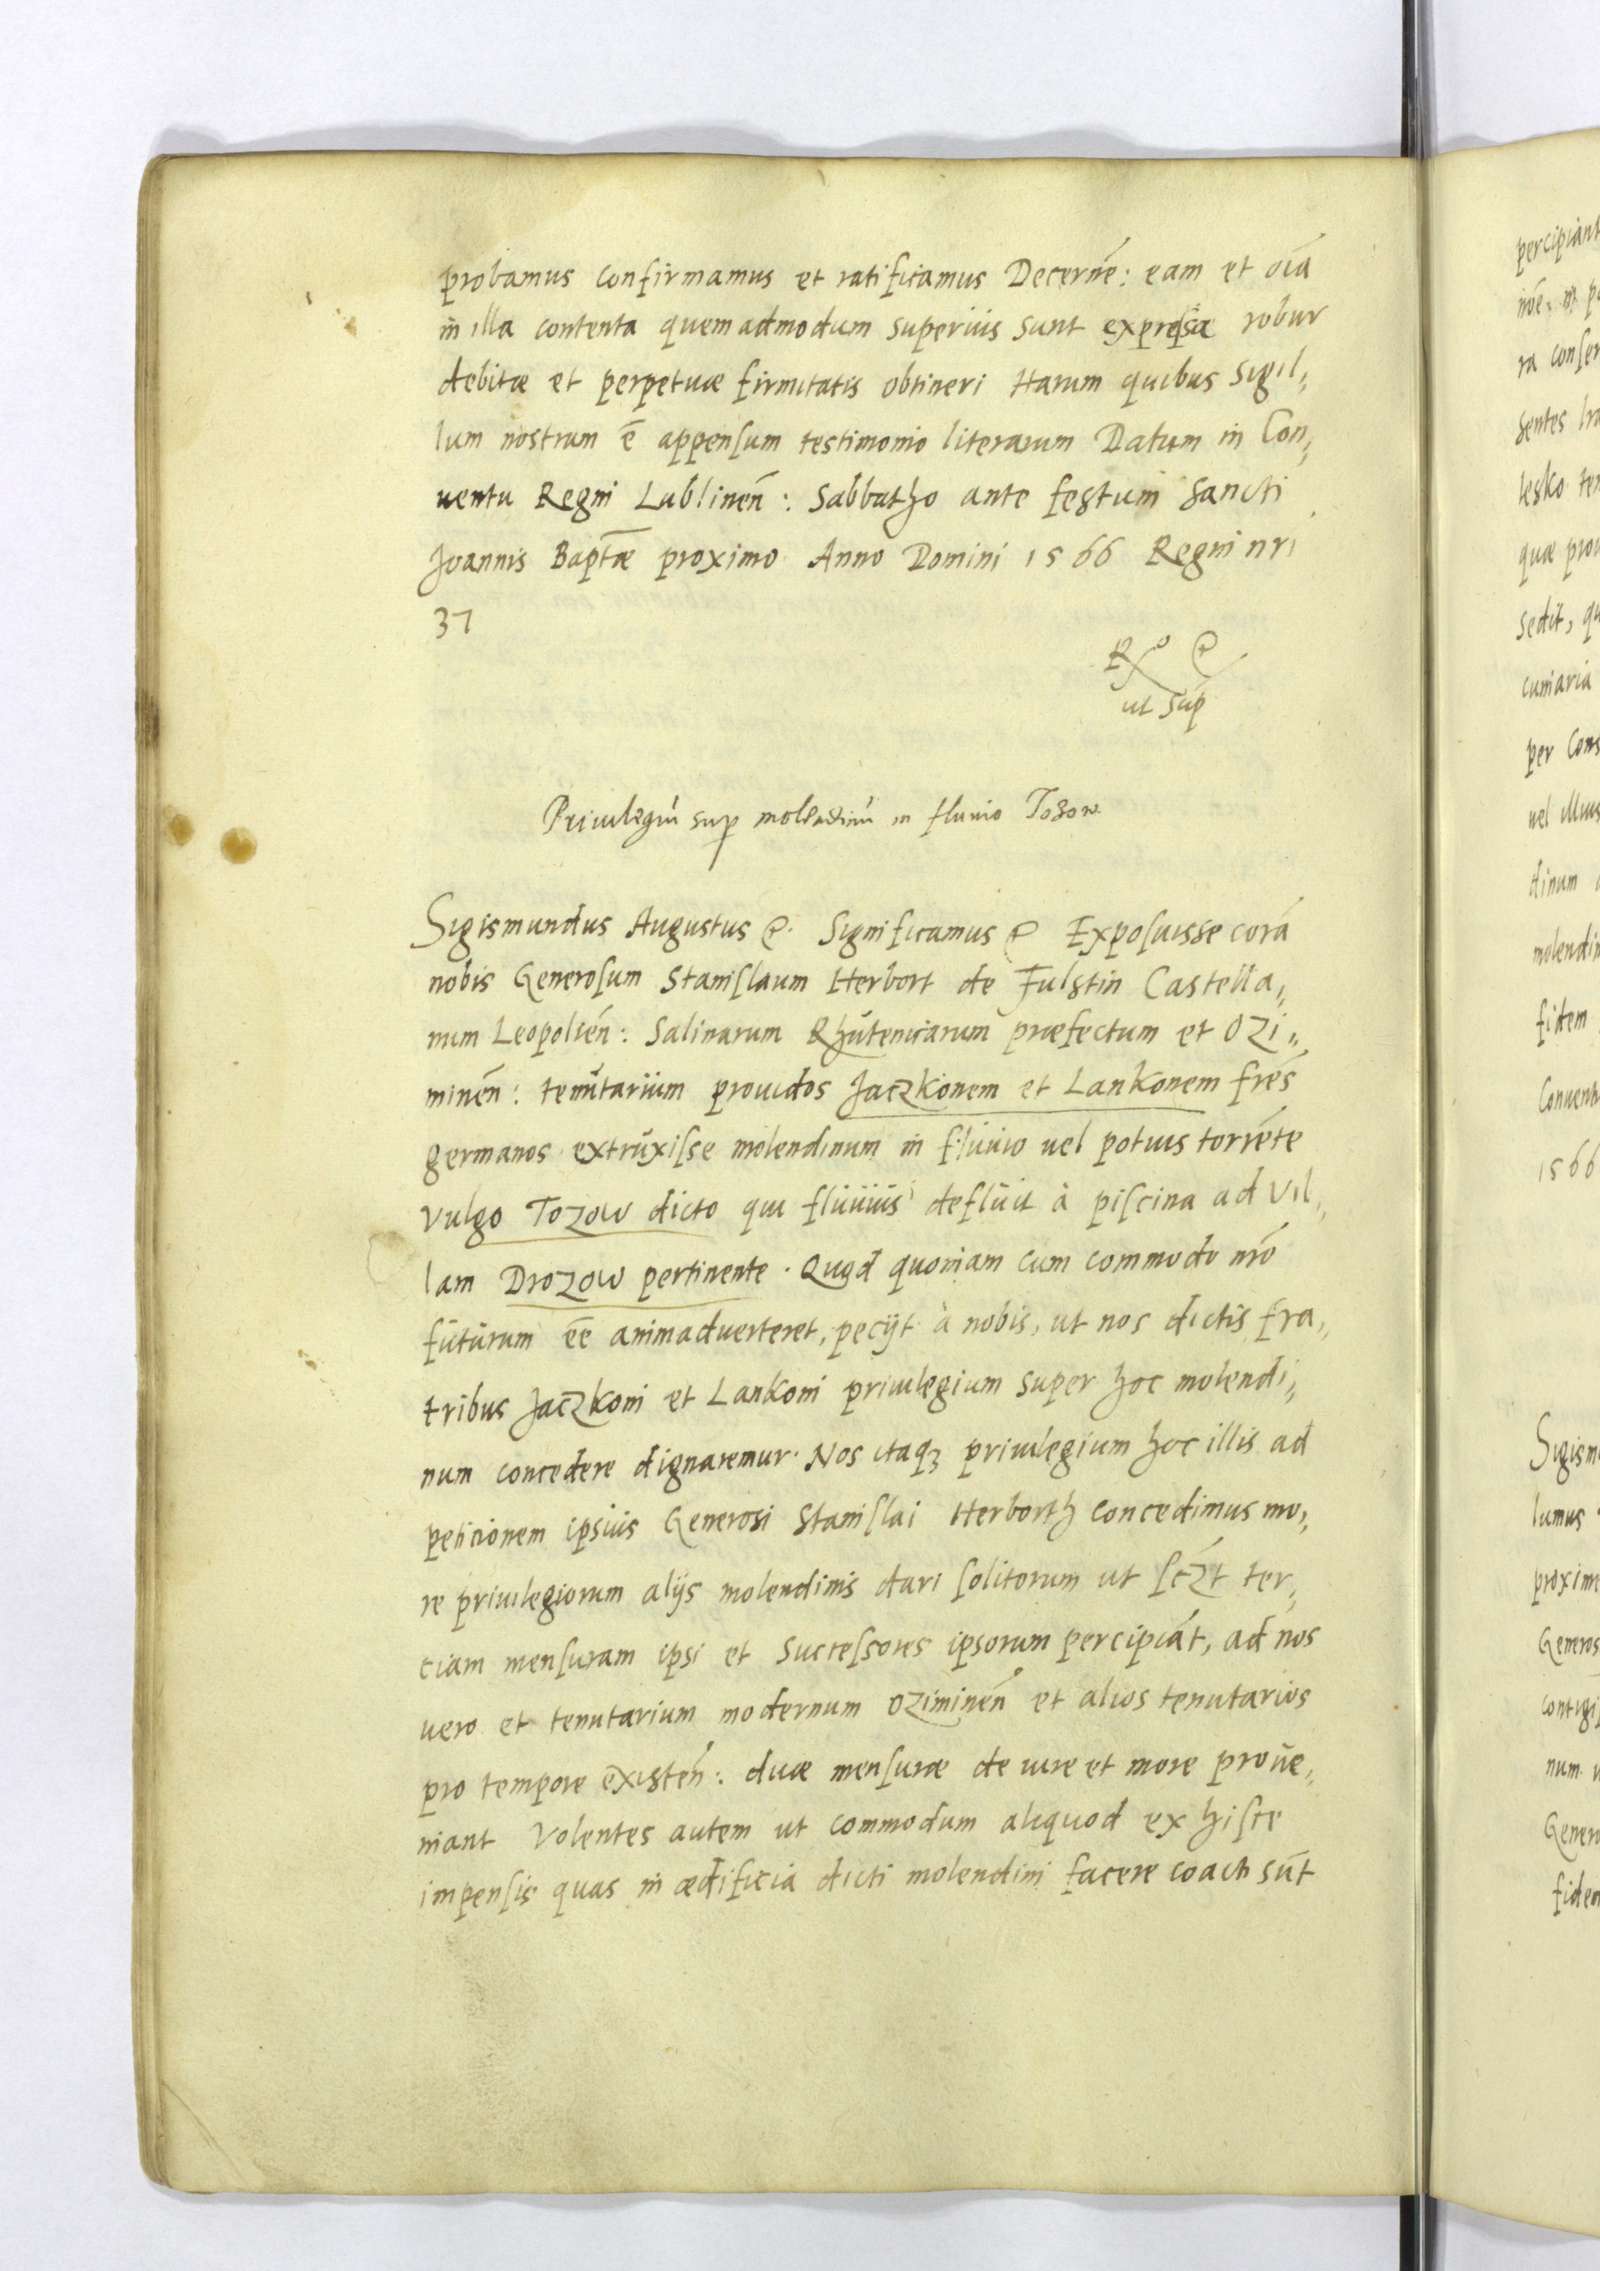 probamus confirmamus et ratificamus Decernẽ: eam et oĩa
in illa contenta quemadmodum superius sunt expressa robur
debitæ et perpetuæ firmitatis obtineri Harum quibus Sigil,,
lum nostrum ẽ appensum testimonio literarum Datum in Con,,
uentu Regni Lublineñ: Sabbatho ante festum Sancti
Joannis Baptæ proximo Anno Domini 1566 Regni nri
37
ut Sup
Priuilegiũ sup molendinũ in fluuio Tozow
Sigismundus Augustus &. Significamus & Exposuisse corã
nobis Generosum Stanislaum Herbort de Fulstin Castella,,
num Leopolieñ: Salinarum Rhutenicarum præfectum et Ozi,,
mineñ: tenutarium prouidos Jaczkonem et Lankonem frẽs
germanos extruxisse molendinum in fluuio uel potius torrẽte
vulgo Tozow dicto qui fluuius defluit à piscina ad Vil,,
lam Drozow pertinente. Quod quoniam cum commodo nrõ
futurum ẽe animaduerteret, pecijt à nobis, ut nos dictis fra,,
tribus Jaczkoni et Lankoni priuilegium super hoc molendi,,
num concedere dignaremur. Nos itaqꝫ priuilegium hoc illis ad
peticionem ipsius Generosi Stanislai Herborth concedimus mo,,
re priuilegiorum alijs molendinis dari solitorum ut sczt ter,,
ciam mensuram ipsi et Successores ipsorum percipiãt, ad nos
uero et tenutarium modernum Ozimineñ et alios tenutarios
pro tempore existeñ: duæ mensuræ de iure et more proue,,
niant Volentes autem ut commodum aliquod ex hisce
impensis quas in ædificia dicti molendini facere coacti sũt